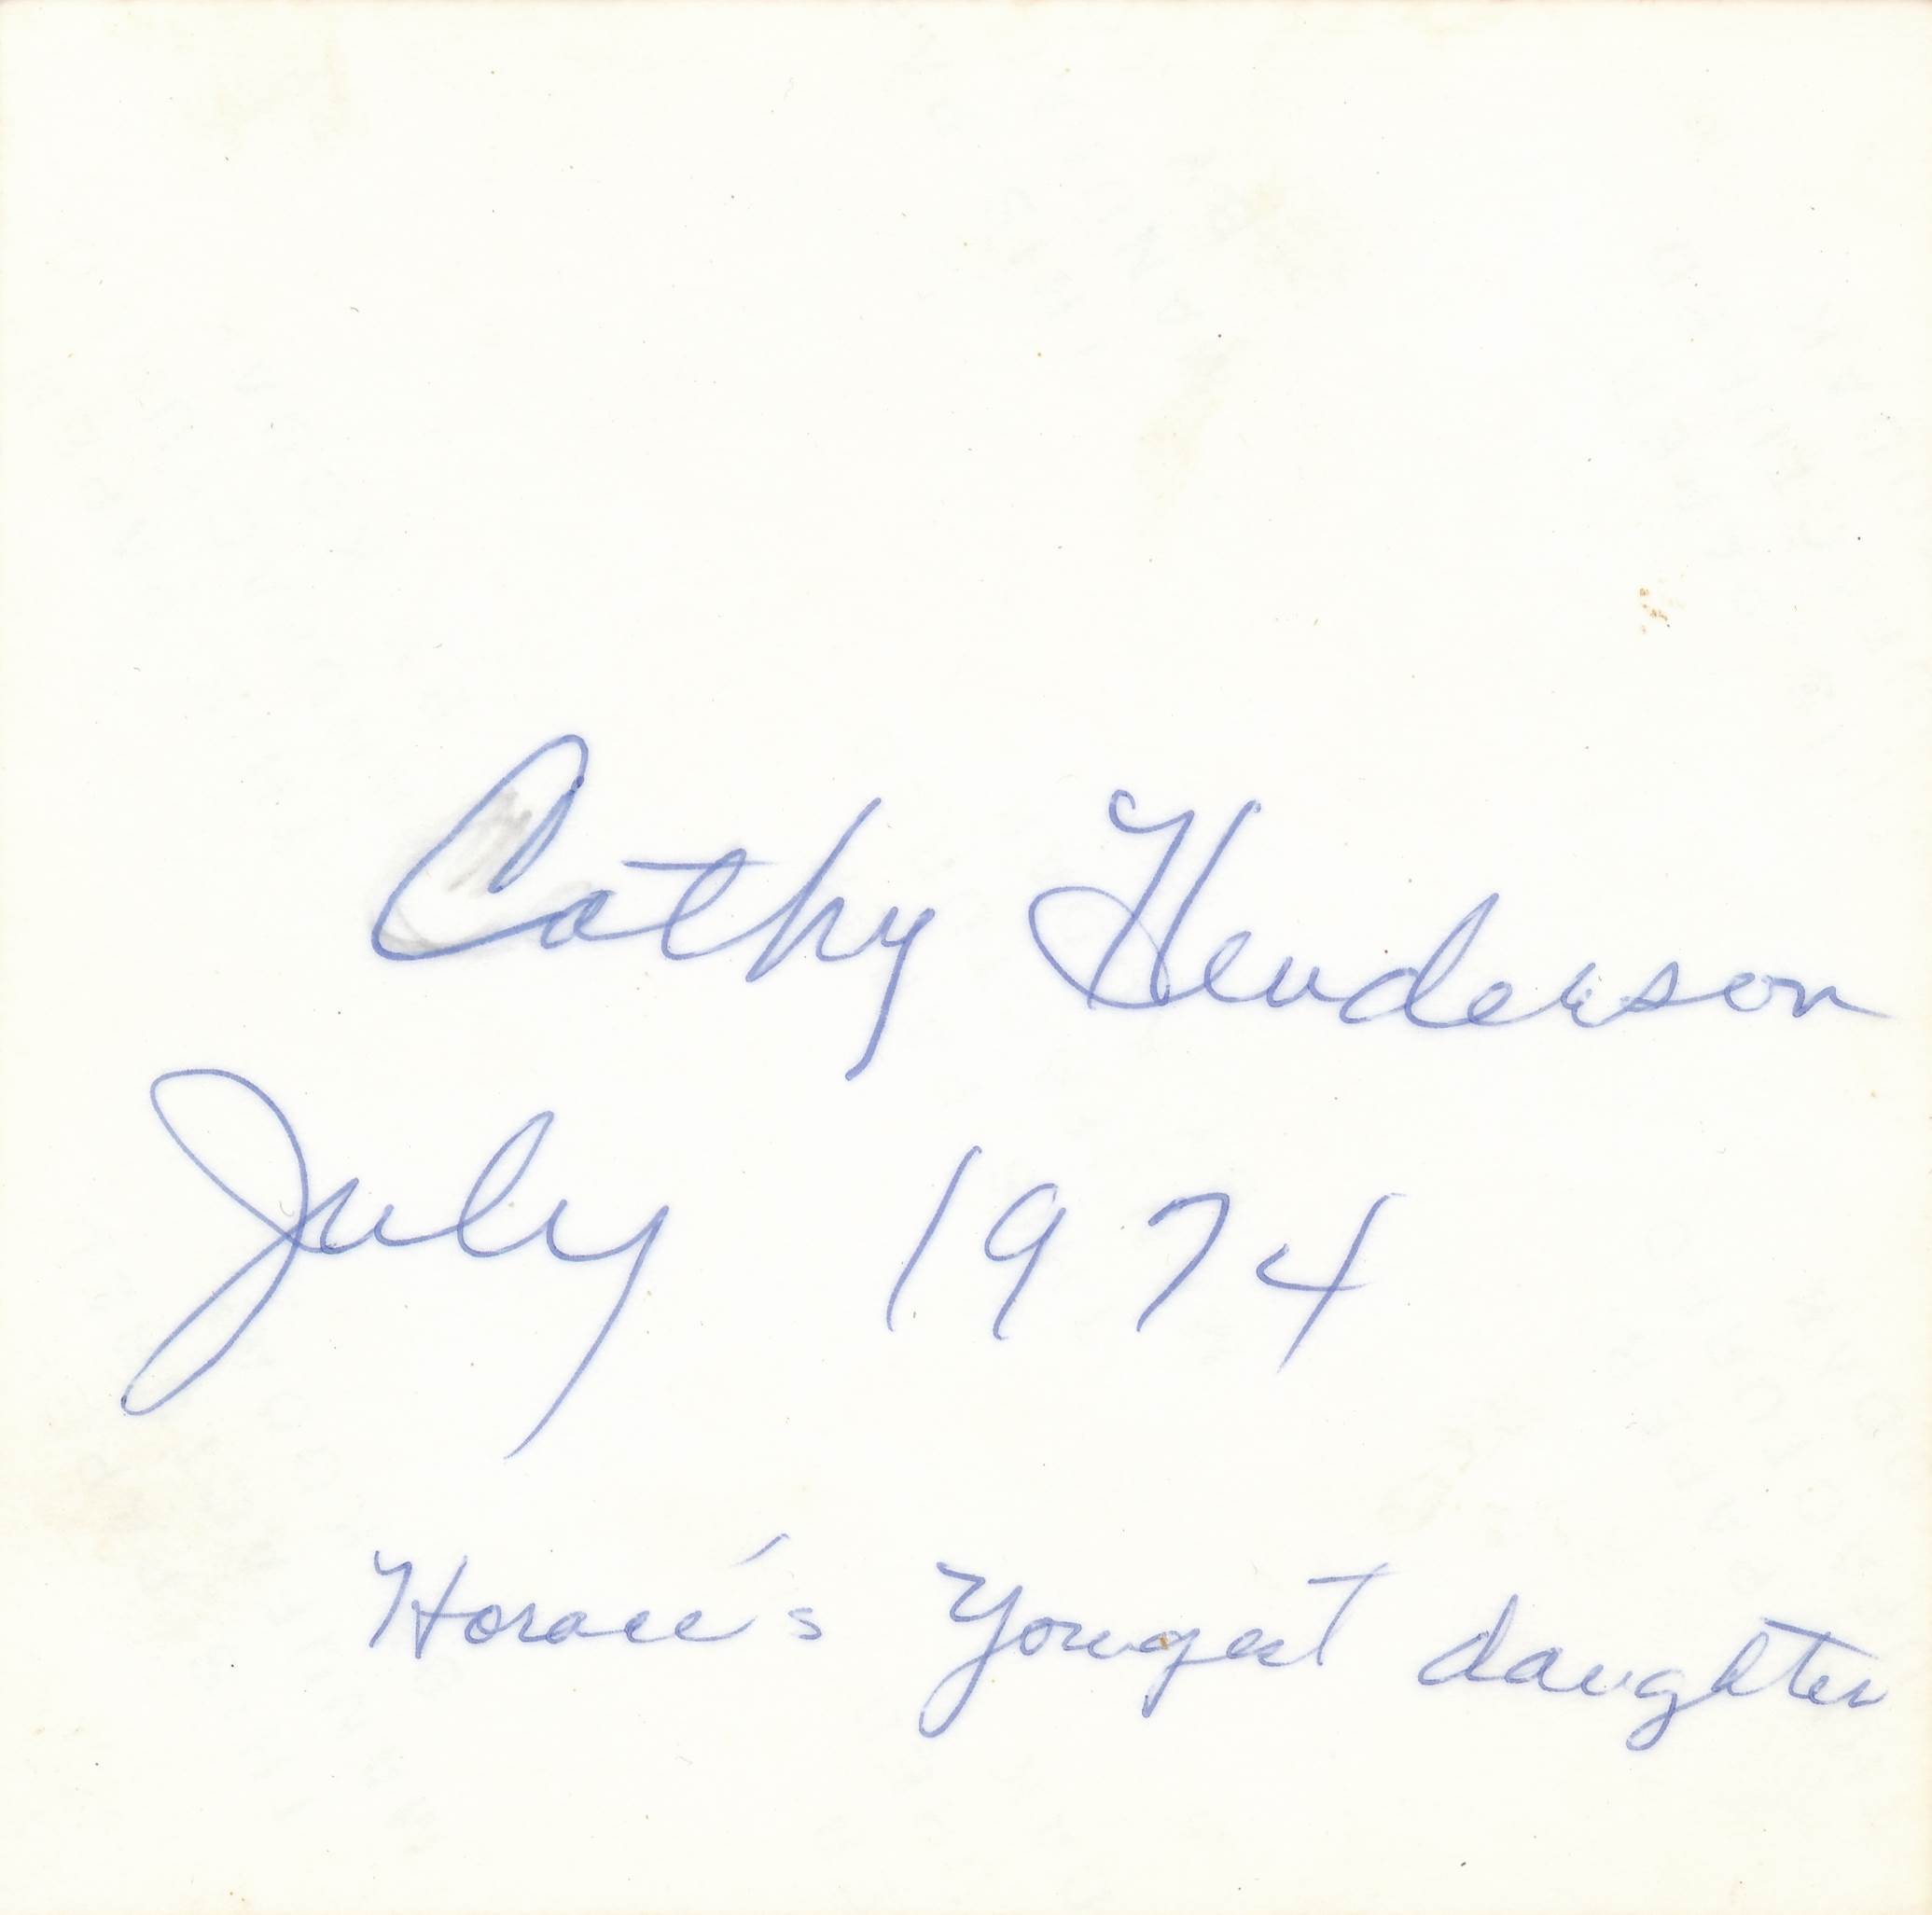 Cathy Henderson
July 1974
Horace's Youngest daughter